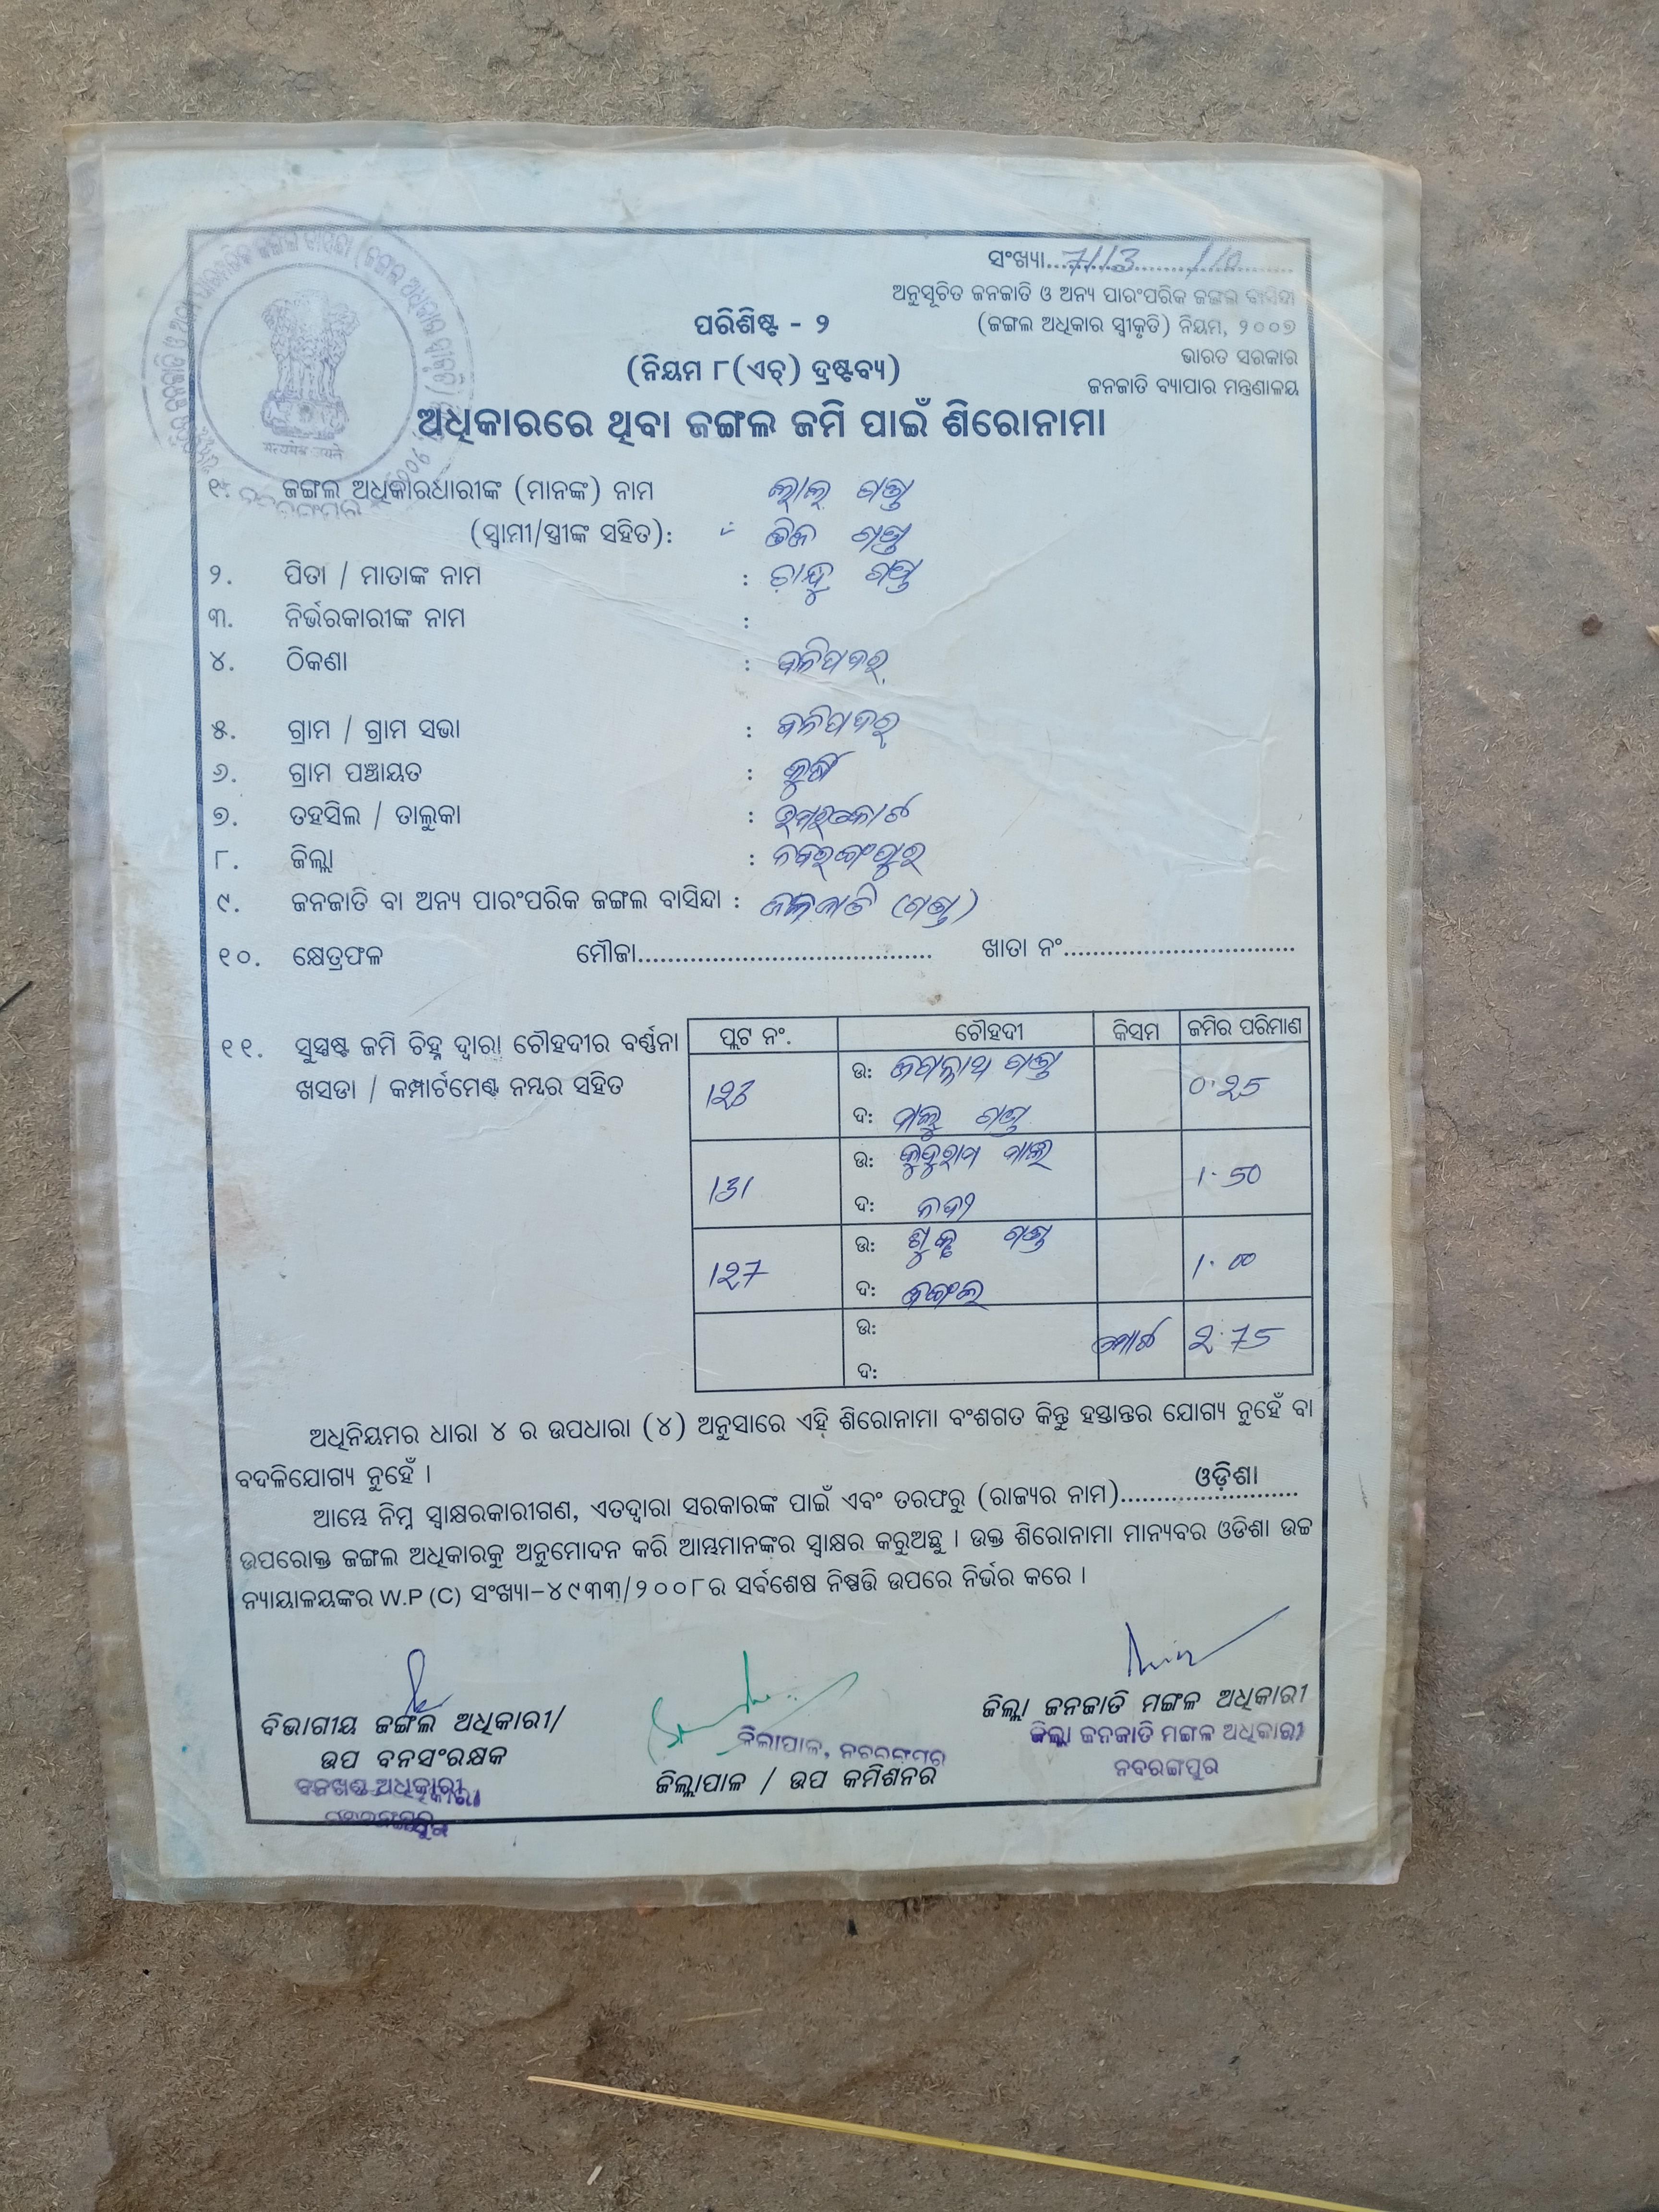 ସଂଖ୍ୟା..7113..........110......
ଅନୁସୂଚିତ ଜନଜାତି ଓ ଅନ୍ୟ ପାରଂପରିକ ଜଙ୍ଗଲ ବାସିନ୍ଦା
(ଜଙ୍ଗଲ ଅଧିକାର ସ୍ୱୀକୃତି) ନିୟମ, ୨୦୦୭
ଭାରତ ସରକାର
ଜନଜାତି ବ୍ୟାପାର ମନ୍ତ୍ରଣାଳୟ
ପରିଶିଷ୍ଟ - ୨
(ନିୟମ ୮(ଏଚ୍) ଦ୍ରଷ୍ଟବ୍ୟ)
ଅଧିକାରରେ ଥିବା ଜଙ୍ଗଲ ଜମି ପାଇଁ ଶିରୋନାମା
୧. ଜଙ୍ଗଲ ଅଧିକାରଧାରୀଙ୍କ (ମାନଙ୍କ) ନାମ ଲାଲ୍ ଗଣ୍ଡ
(ସ୍ୱାମୀ/ସ୍ତ୍ରୀଙ୍କ ସହିତ): ଗଣ୍ଡ
୨. ପିତା / ମାତାଙ୍କ ନାମ : ଚାନ୍ଦୁ ଗଣ୍ଡ
୩. ନିର୍ଭରକାରୀଙ୍କ ନାମ :
୪. ଠିକଣା : ବଳିପଦର୍
୫. ଗ୍ରାମ / ଗ୍ରାମ ସଭା : ବଳିପଦର୍
୬. ଗ୍ରାମ ପଞ୍ଚାୟତ :
୭. ତହସିଲ / ତାଲୁକା :
୮. ଜିଲ୍ଲା : ନବରଙ୍ଗପୁର
୯. ଜନଜାତି ବା ଅନ୍ୟ ପାରଂପରିକ ଜଙ୍ଗଲ ବାସିନ୍ଦା : ଜନଜାତି (ଗଣ୍ଡ)
୧୦. କ୍ଷେତ୍ରଫଳ ମୌଜା....................................... ଖାତା ନଂ...............................
୧୧. ସୁସ୍ପଷ୍ଟ ଜମି ଚିହ୍ନ ଦ୍ୱାରା ଚୌହଦୀର ବର୍ଣ୍ଣନା
ଖସଡା / କମ୍ପାର୍ଟମେଣ୍ଟ ନମ୍ବର ସହିତ
ପ୍ଲଟ ନଂ. ଚୌହଦୀ କିସମ ଜମିର ପରିମାଣ
123 ଉ: ଜଗନ୍ନାଥ ଗଣ୍ଡ 0.25
ଦ: ଗଣ୍ଡ
131 ଉ: 1.50
ଦ: ନଦୀ
127 ଉ: ଗଣ୍ଡ 1.00
ଦ: ଜଙ୍ଗଲ
ଉ: ମୋଟ 2.75
ଦ:
ଅଧିନିୟମର ଧାରା ୪ ର ଉପଧାରା (୪) ଅନୁସାରେ ଏହି ଶିରୋନାମା ବଂଶଗତ କିନ୍ତୁ ହସ୍ତାନ୍ତର ଯୋଗ୍ୟ ନୁହେଁ ବା
ବଦଳିଯୋଗ୍ୟ ନୁହେଁ ।
ଆମ୍ଭେ ନିମ୍ନ ସ୍ୱାକ୍ଷରକାରୀଗଣ, ଏତଦ୍ୱାରା ସରକାରଙ୍କ ପାଇଁ ଏବଂ ତରଫରୁ (ରାଜ୍ୟର ନାମ)..........ଓଡ଼ିଶା..........
ଉପରୋକ୍ତ ଜଙ୍ଗଲ ଅଧିକାରକୁ ଅନୁମୋଦନ କରି ଆମ୍ଭମାନଙ୍କର ସ୍ୱାକ୍ଷର କରୁଅଛୁ । ଉକ୍ତ ଶିରୋନାମା ମାନ୍ୟବର ଓଡିଶା ଉଚ୍ଚ
ନ୍ୟାୟାଳୟଙ୍କର W.P (C) ସଂଖ୍ୟା-୪୯୩୩/୨୦୦୮ର ସର୍ବଶେଷ ନିଷ୍ପତ୍ତି ଉପରେ ନିର୍ଭର କରେ ।
ବିଭାଗୀୟ ଜଙ୍ଗଲ ଅଧିକାରୀ/
ଉପ ବନସଂରକ୍ଷକ
ବନଖଣ୍ଡ ଅଧିକାରୀ
ଜିଲାପାଳ, ନବରଙ୍ଗପୁର
ଜିଲ୍ଲାପାଳ / ଉପ କମିଶନର
ଜିଲ୍ଲା ଜନଜାତି ମଙ୍ଗଳ ଅଧିକାରୀ
ଜିଲ୍ଲା ଜନଜାତି ମଙ୍ଗଳ ଅଧିକାରୀ
ନବରଙ୍ଗପୁର